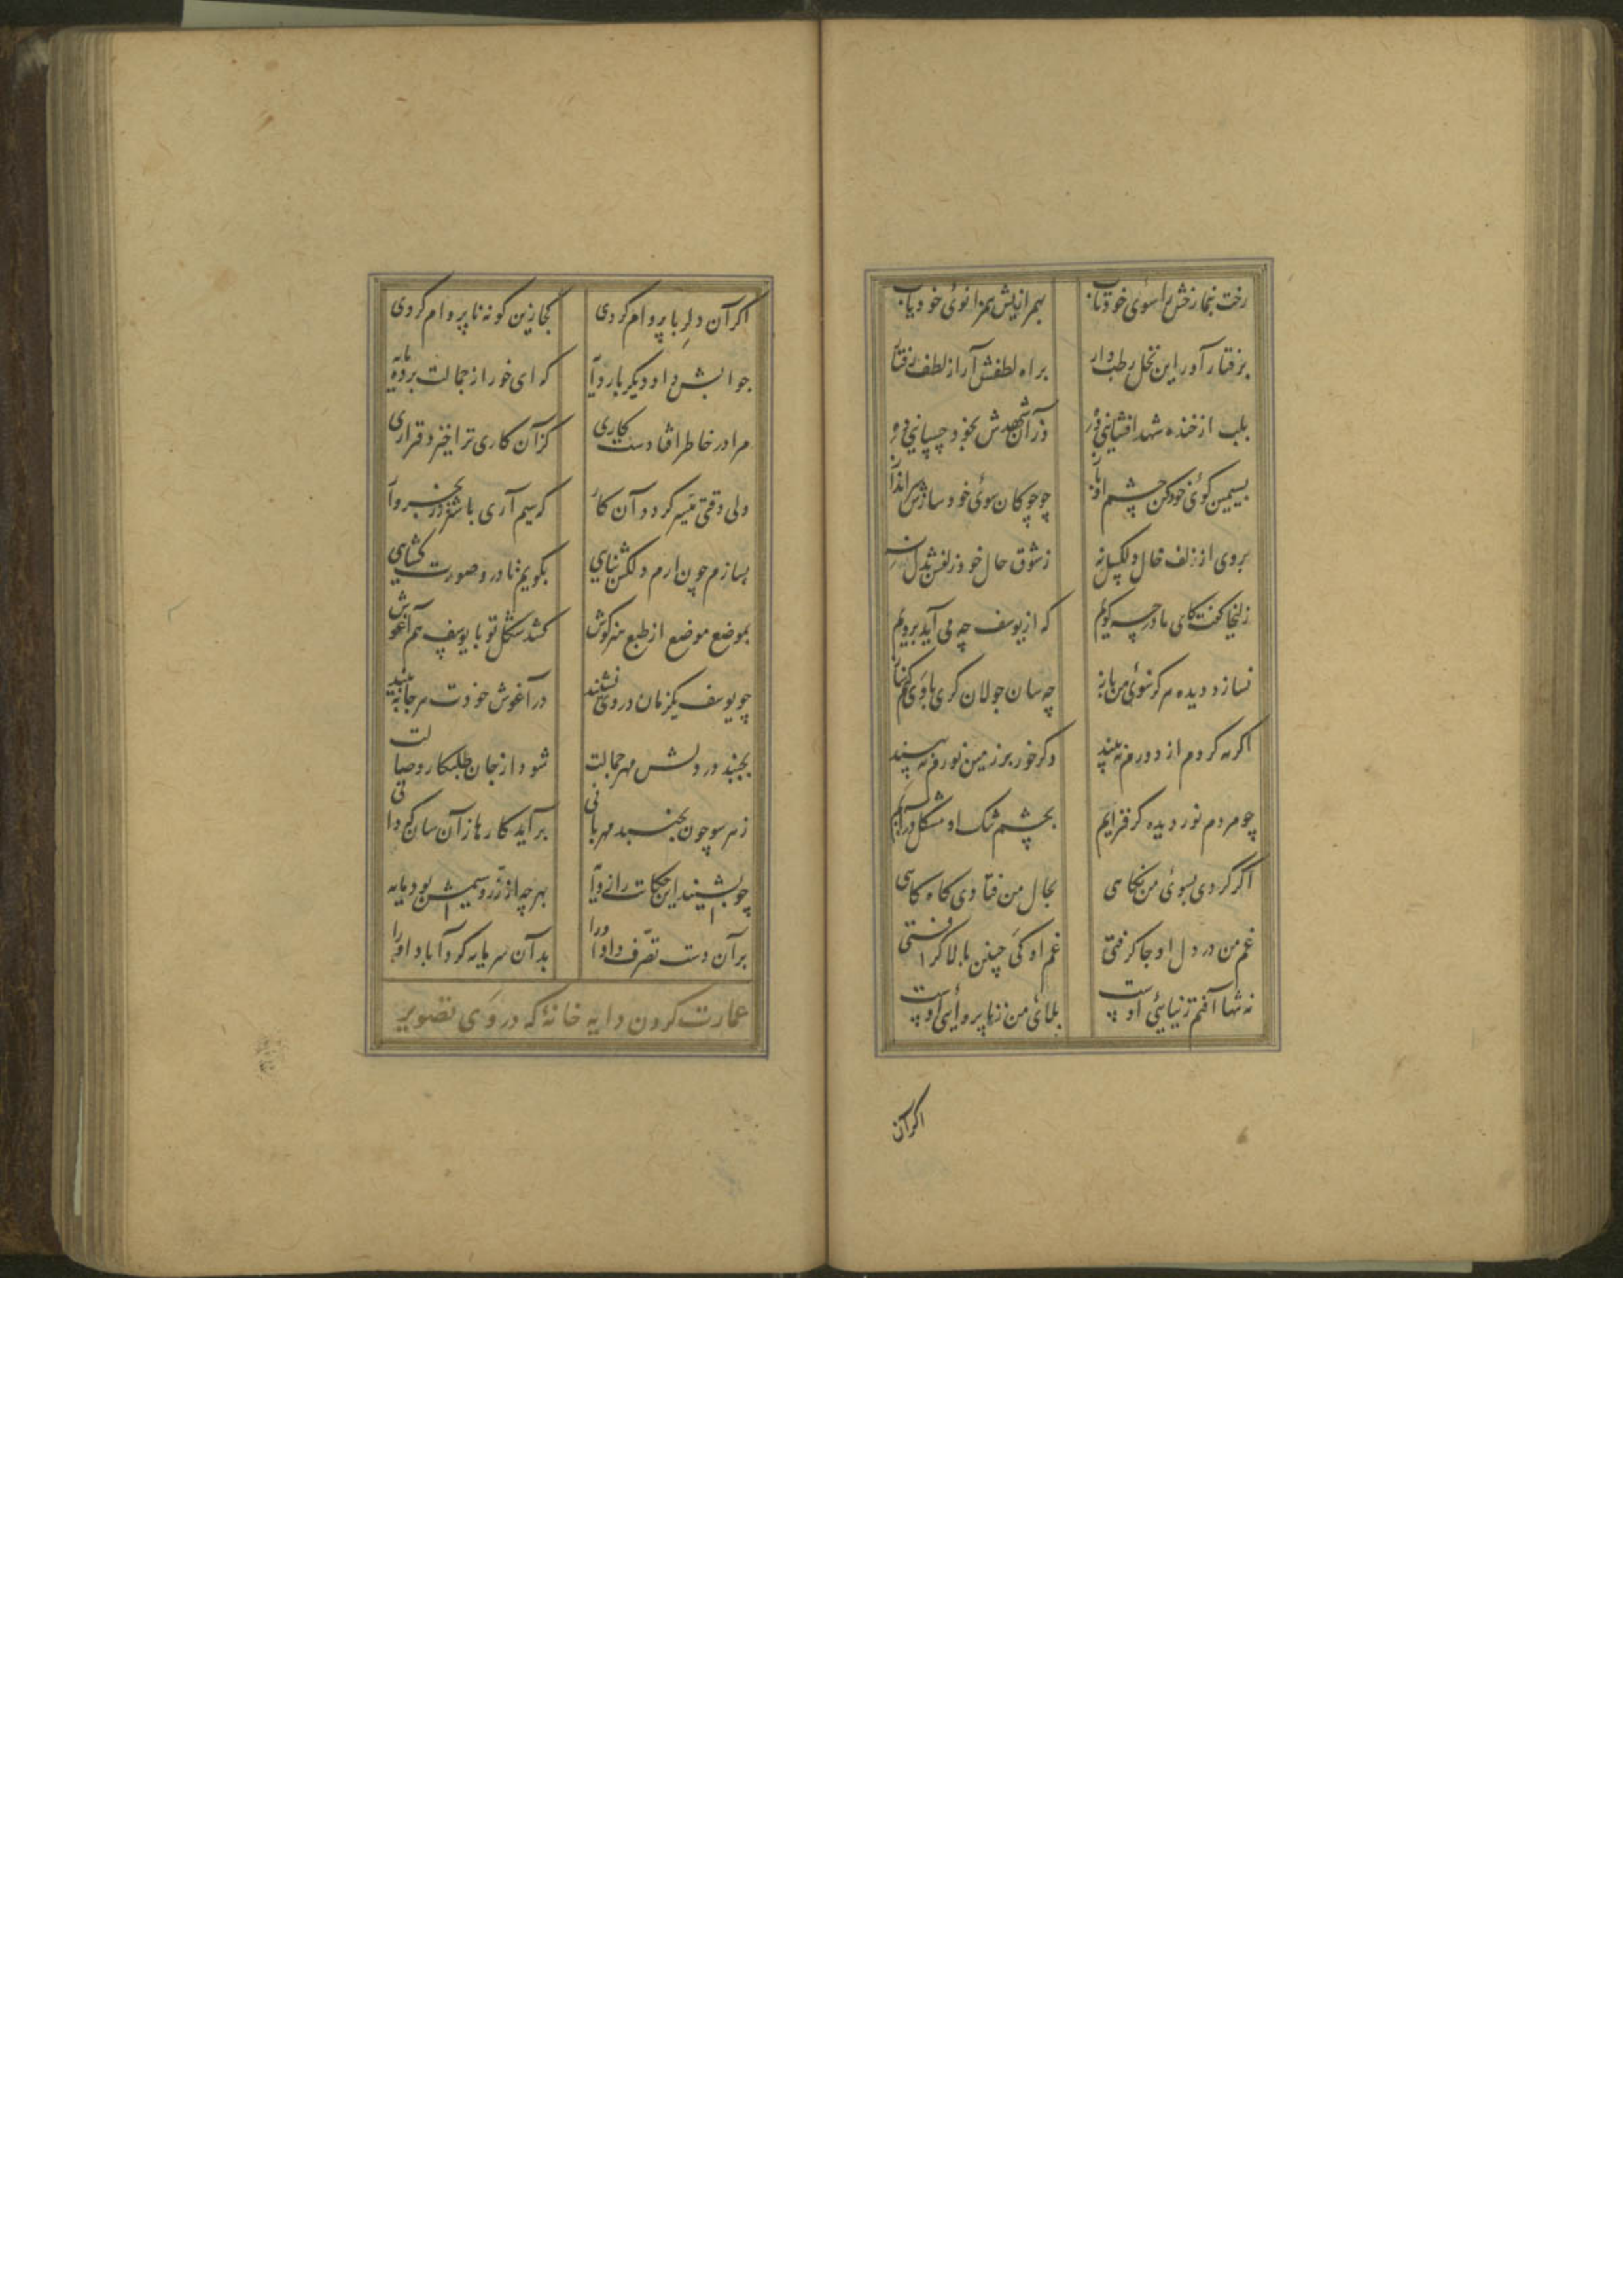 رخت بنما رخش را سوی خود تاب بهمرازیش همزانوی خود یاب
برفتار آور این نخل رطب‌وار براه لطفش آر از لطف رفتار
بلب از خنده شهد افشانی آموز وزآن شهدش بخود چسپانی آموز
بسیمین گوی خود کن چشم او باز چو چوکان سوی خود سازش سرانداز
بروی از زلف خال و لکپسل نه ز شوق حال خود زلفش بدل نه
زلیخا کفت کای مادر چه کویم که از یوسف چه می آید برویم
نسازد دیده هرکز سوئ من باز چه سان جولان کری با وی کنم
اکر مه کردم از دورم نه بیند وکر خور بر زمین نورم نه بیند
چو مردم نور دیده کر فزایم بچشم تنک او مشکل درآیم
اکر کردی بسوی من نکاهی بحال من فتادی کاه کاهی
غم من در دل او جا کرفتی غم او کی چنین بالا کرفتی
نه تنها آفتم زیبایئ اوست بلای من ز ناپروائی اوست
اکر آن
اکر آن دلبر با پروام کردی کجا زین کونه ناپروام کردی
جوابش داد دیکر بار دایه که ای خور از جمالت برده مایه
مرا در خاطر افتادست کاری کزآن کاری ترا خیزد قراری
ولی وقتی میسر کردد آن کار که سیم آری باشتر زر بخروار
بسازم چون ارم دلکش بنایی بکویم تا درو صورت کشایی
بموضع موضع از طبع هنرکوش کشد شکل تو با یوسف هم‌آغوش
چو یوسف یکزمان در وی نشیند در آغوش خودت هر جا به بیند
بجنبد در دلش مهر جمالت شود از جان طلبکار وصالت
ز هر سو چون بجنبد مهربانی برآید کارها زآن سان که دانی
چو بشنید این حکایت را ز دایه بهرچه از زر و سیمش بود مایه
برآن دست تصرف داد او را بدآن سرمایه کرد آباد او را
عمارت کردن دایه خانهٔ که در وی تصویر